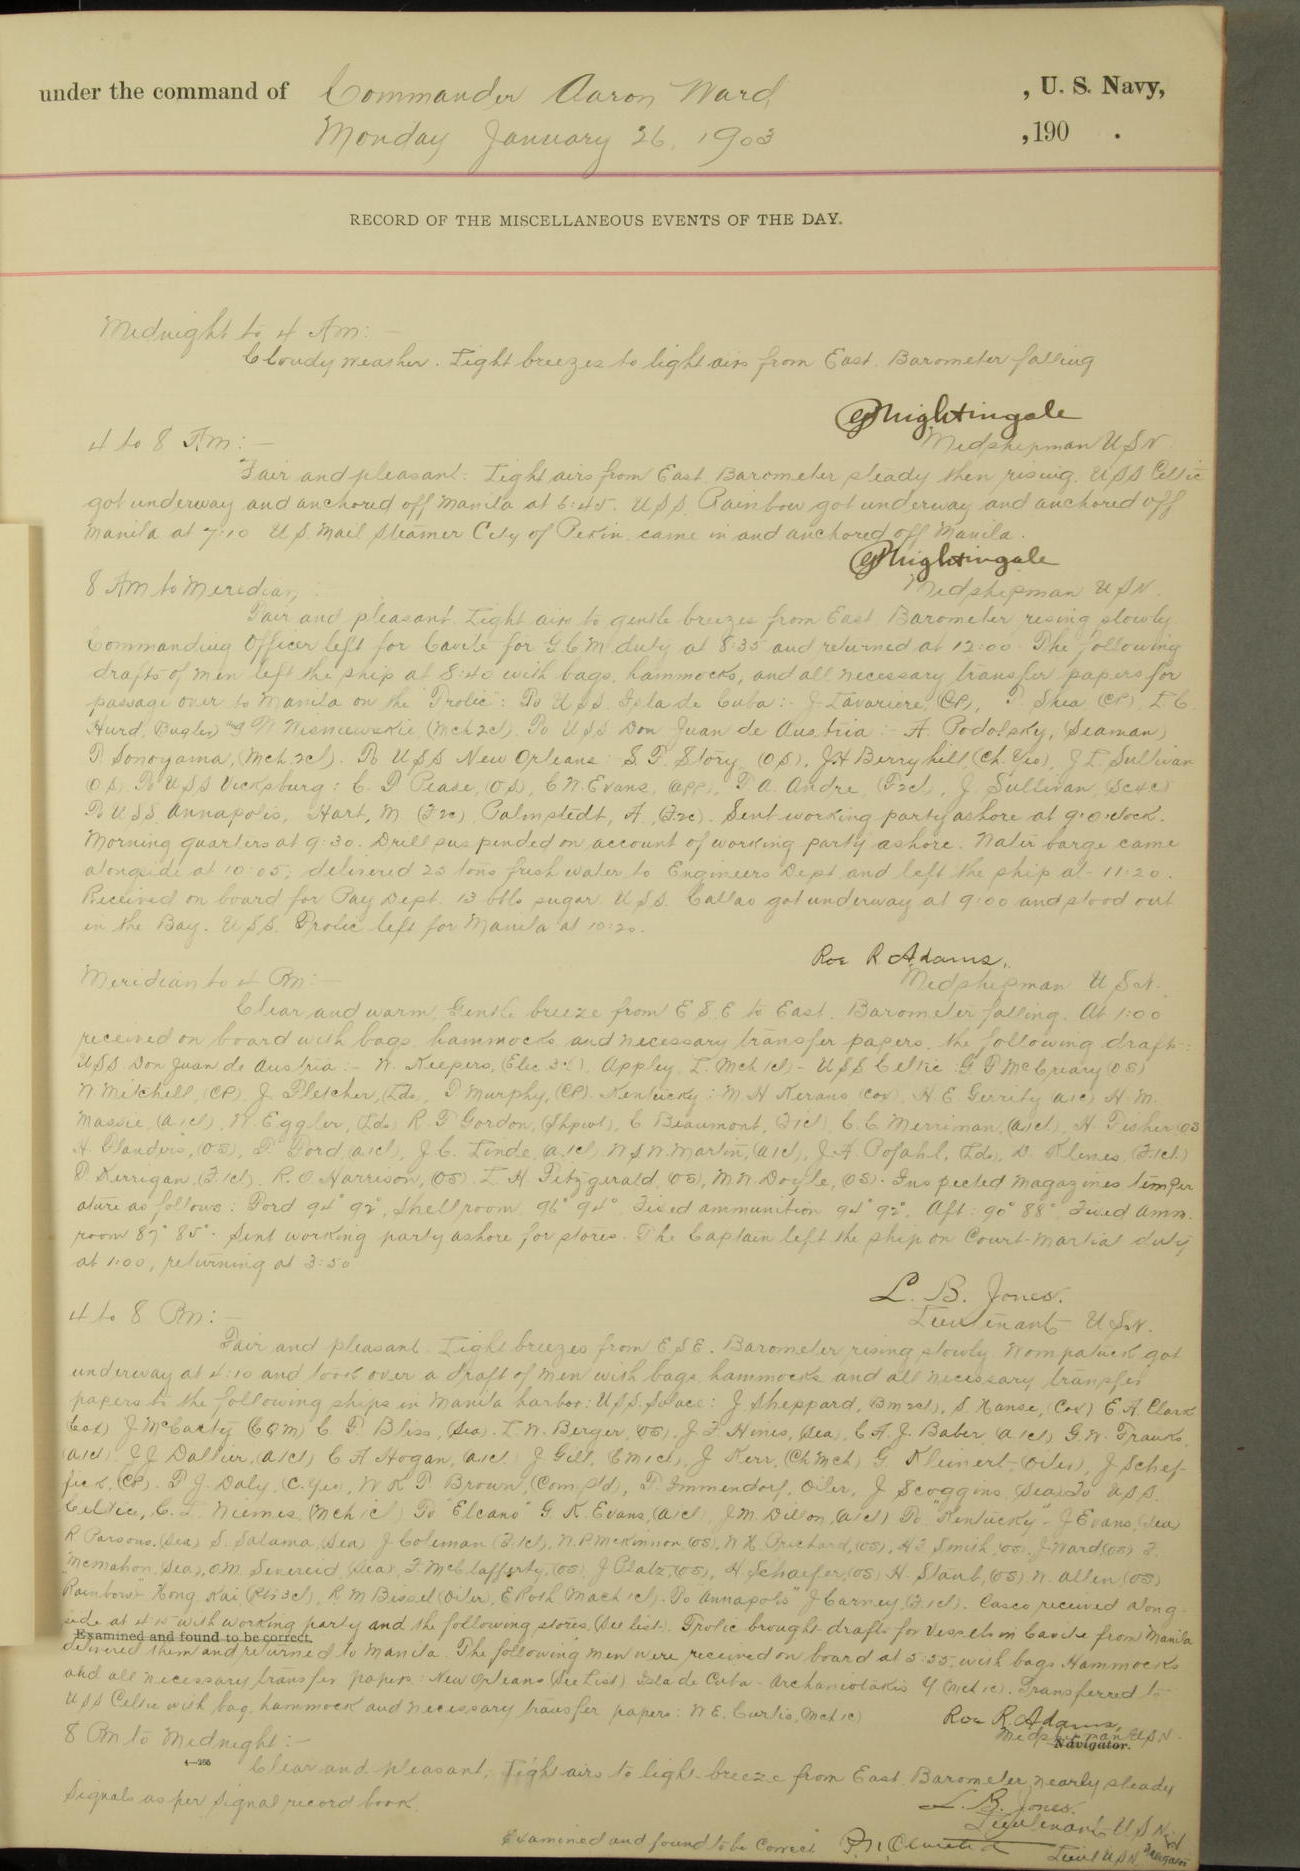 under the command of Commander Aaron Ward , U. S. Navy,
Monday January 26, 1903 , 190 .
RECORD OF THE MISCELLANEOUS EVENTS OF THE DAY.
Midnight to 4 Am: —
Cloudy weather. Light breezes to light airs from East. Barometer falling
Nightingale
Midshipman U S N.
4 to 8 Am: —
Fair and pleasant. Light airs from East. Barometer steady then rising. U S S Celtic
got underway and anchored off Manila at 6:45. U.S.S. Rainbow got underway and anchored off
Manila at 7:10 U S Mail Steamer City of Pekin came in and anchored off Manila.
Nightingale
Midshipman U S N.
8 Am to Meridian
Fair and pleasant. Light airs to gentle breezes from East. Barometer rising slowly
Commanding Officer left for Cavite for G.C.M. duty at 8:35 and returned at 12:00. The following
drafts of men left the ship at 8:40 with bags, hammocks, and all necessary transfer papers for
passage over to Manila on the "Frolic": To U S S. Isla de Cuba:- J. Lavariere, (CP), T. Shea (CP), L C.
Hurd, Bugler, and W Wisniewskie (Mch 2cl). To U S S Don Juan de Austria:- A. Podolsky, (Seaman)
T. Sonoyama, (Mch. 2cl). To U S S New Orleans: S. T. Story (O S), J.H Berryhill, (Ch. Yeo), J L. Sullivan
(O S). To U S S Vicksburg: C. D Pease, (O S), C W. Evans, (app), T. A. Andre, (F2cl), J. Sullivan, (SC4c)
To U S S. Annapolis, Hart, M (F2c), Palmstedt, A, (F2c). Sent working party ashore at 9:00 o'clock.
Morning quarters at 9:30. Drill suspended on account of working party ashore. Water barge came
alongside at 10:05, delivered 25 tons fresh water to Engineers Dept and left the ship at 11:20.
Received on board for Pay Dept. 13 bbls sugar. U.S.S. Callao got underway at 9:00 and stood out
in the Bay. U.S.S. Frolic left for Manila at 10:20.
Roe R Adams,
Midshipman U.S.N.
Meridian to 4 Pm: —
Clear and warm. Gentle breeze from E S E to East. Barometer falling. At 1:00
received on board with bags, hammocks and necessary transfer papers, the following drafts:
U S S Don Juan de Austria:- W. Keepers, (Elec 3cl), Appley, L. Mch 1cl) - U S S Celtic: G T McCreary (O S)
W Mitchell, (CP), J. Fletcher, (Lds, T Murphy, (CP). Kentucky: M H Kerans (Cox), H E Gerrity (a1c) H. M.
Massie, (a1cl), W. Eggler, (Lds) R. T Gordon, (Shpwt), C Beaumont, F1cl), C. C. Merriman, (a1cl), H. Fisher (OS
H. Glanders, (OS), T. Ford (a1cl), J. C. Linde, (a.1cl), W.S. W. Martin, (a1cl), J.A. Pofahl, (Lds), D. Klines, (F.1cl.)
D. Kerrigan, (F.1cl). R. O Harrison, (OS). L. H. Fitzgerald, (OS), M.W. Doyle, (OS). Inspected magazines temper
ature as follows: Ford 94° 92°, Shellroom, 96° 94°, Fixed ammunition 94° 92°. Aft: 90° 88°, Fixed Amm.
room 87° 85°. Sent working party ashore for stores. The Captain left the ship on Court-Martial duty
at 1:00, returning at 3:50
L. B. Jones.
Lieutenant U S N.
4 to 8 Pm: —
Fair and pleasant. Light breezes from E.S.E. Barometer rising slowly. Wompatuck got
underway at 4:10 and took over a draft of men with bags, hammocks and all necessary transfer
papers to the following ships in Manila harbor: U.S.S. Solace: J. Sheppard, Bm2cl), S Hanse, (Cox) E A. Clark
(Cox) J McCarty (CQM) C. T. Bliss, (Sea). L. W. Berger, (OS). J. F Hines, (Sea), C A. J. Baber, (a1cl) G. W. Franks,
(a1cl) J J Daltier, (a1cl) C A Hogan, (a1cl) J Gill, (Bm1cl), J Kerr, (Ch Mch) G Kleinert, (Oiler), J. Schef-
fick, (CP). T J. Daly, (C. Yeo), W R T. Brown, (Com p'd), T. Immendorf, Oiler, J Scoggins (Sea). To U S S.
Celtic, C. L. Niemes, (Mch 1c) To "Elcano" G. K. Evans, (a1cl), J M. Dillon, (a1cl) To "Kentucky" - J Evans, (Sea)
R Parsons. (Sea) S. Salama, (Sea) J Coleman (F.1cl), W.P. McKinnon (OS), W H. Prichard, (OS), H F Smith (OS), J Ward (OS) F.
McMahon, (Sea), O.M. Severeid (Sea), F. McClafferty, (OS), J Platz, (OS), H Schaefer, (OS) H Staub, (OS) W. Allen (OS)
Rainbow Hong Kai, R M Bissel (Oiler, E Roth Mach 1cl). To "Annapolis" J Carney, (F.1cl). Casco received along-
side at 4:15 with working party and the following stores, (See list). Frolic brought drafts for vessels in Cavite from Manila
Examined and found to be correct.
delivered them and returned to Manila. The following men were received on board at 5:35, with bags, Hammocks
and all necessary transfer papers: New Orleans (See List) Isla de Cuba - Archaniotakis Y (Mch 1c). Transferred to
U S S Celtic with bag, hammock and necessary transfer papers: W E. Curtis, (Mch 1c)
Roe R. Adams,
Midshipman U S N.
Navigator.
8 Pm to Midnight: —
4—266
Clear and pleasant. Light airs to light breeze from East. Barometer nearly steady
Signals as per Signal record book.
L. B. Jones.
Lieutenant U S N.
Examined and found to be Correct
Lieut U S N